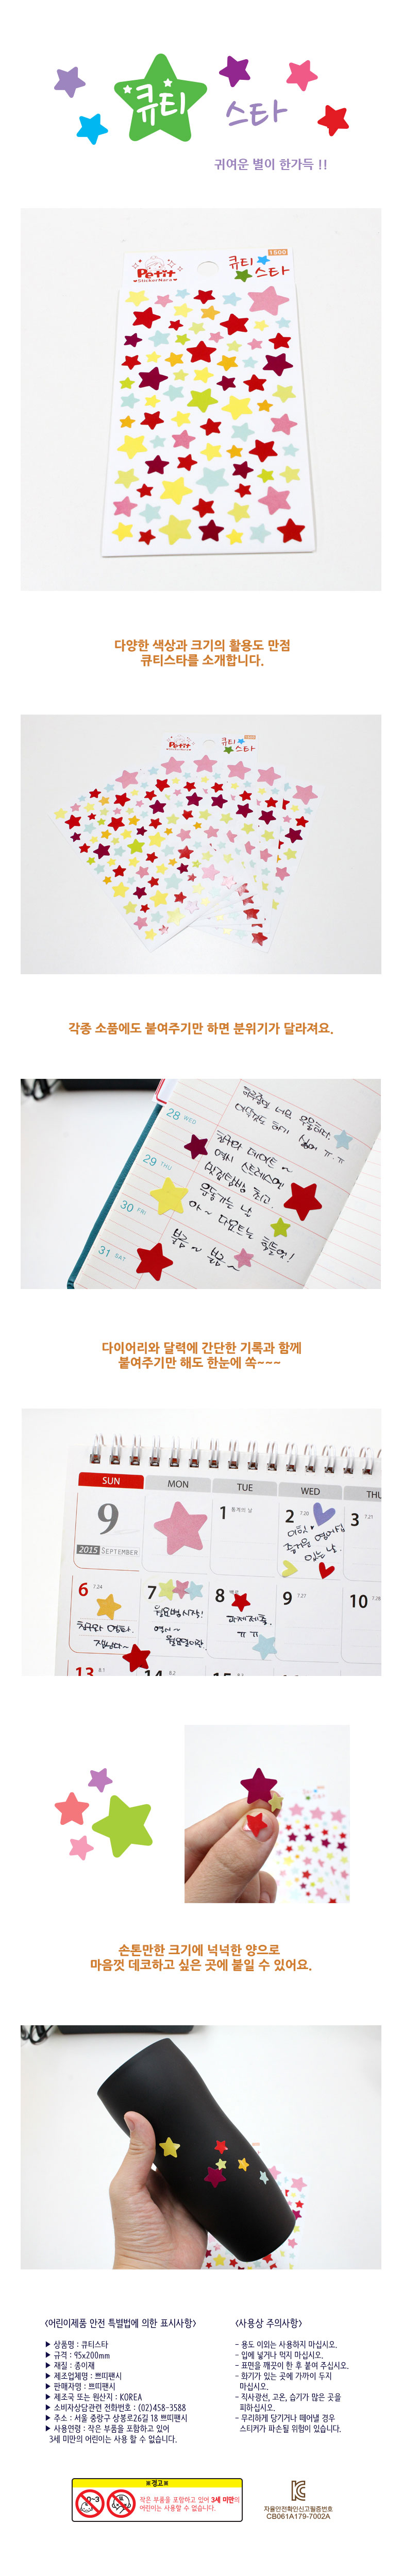 큐티 스타
귀여운 별이 한가득 !!
Petit
StickerNara
큐티
스타
1500
다양한 색상과 크기의 활용도 만점
큐티스타를 소개합니다.
Petit
큐티
스타
각종 소품에도 붙여주기만 하면 분위기가 달라져요.
28 WED
29 THU
친구와 데이트~
역시 스트레스엔
맛집탐방 최고.
30 FRI
유동가는 날
아~ 다요트는 힘들엇!
31 SAT
불금~ 불금~
다이어리와 달력에 간단한 기록과 함께
붙여주기만 해도 한눈에 쏙~~~
SUN MON TUE WED THU
9
2015 SEPTEMBER
1 통계의 날
2 7.20
3 7.21
즐거운 영어수업
있는 날.
6 7.24
7
8 백로
9 7.27
10 7.28
친구와 영화.
잼났다~
월요병시작!
역시~
월요일이란.
과제제출.
ㅠㅠ
13 8.1
14 8.2
15
손톤만한 크기에 넉넉한 양으로
마음껏 데코하고 싶은 곳에 붙일 수 있어요.
<어린이제품 안전 특별법에 의한 표시사항>
▶ 상품명 : 큐티스타
▶ 규격 : 95x200mm
▶ 재질 : 종이재
▶ 제조업체명 : 쁘띠팬시
▶ 판매자명 : 쁘띠팬시
▶ 제조국 또는 원산지 : KOREA
▶ 소비자상담관련 전화번호 : (02)458-3588
▶ 주소 : 서울 중랑구 상봉로26길 18 쁘띠팬시
▶ 사용연령 : 작은 부품을 포함하고 있어
3세 미만의 어린이는 사용 할 수 없습니다.
<사용상 주의사항>
- 용도 이외는 사용하지 마십시오.
- 입에 넣거나 먹지 마십시오.
- 표면을 깨끗이 한 후 붙여 주십시오.
- 화기가 있는 곳에 가까이 두지
마십시오.
- 직사광선, 고온, 습기가 많은 곳을
피하십시오.
- 무리하게 당기거나 떼어낼 경우
스티커가 파손될 위험이 있습니다.
※경고※
0~3
작은 부품을 포함하고 있어 3세 미만의
어린이는 사용할 수 없습니다.
자율안전확인신고필증번호
CB061A179-7002A